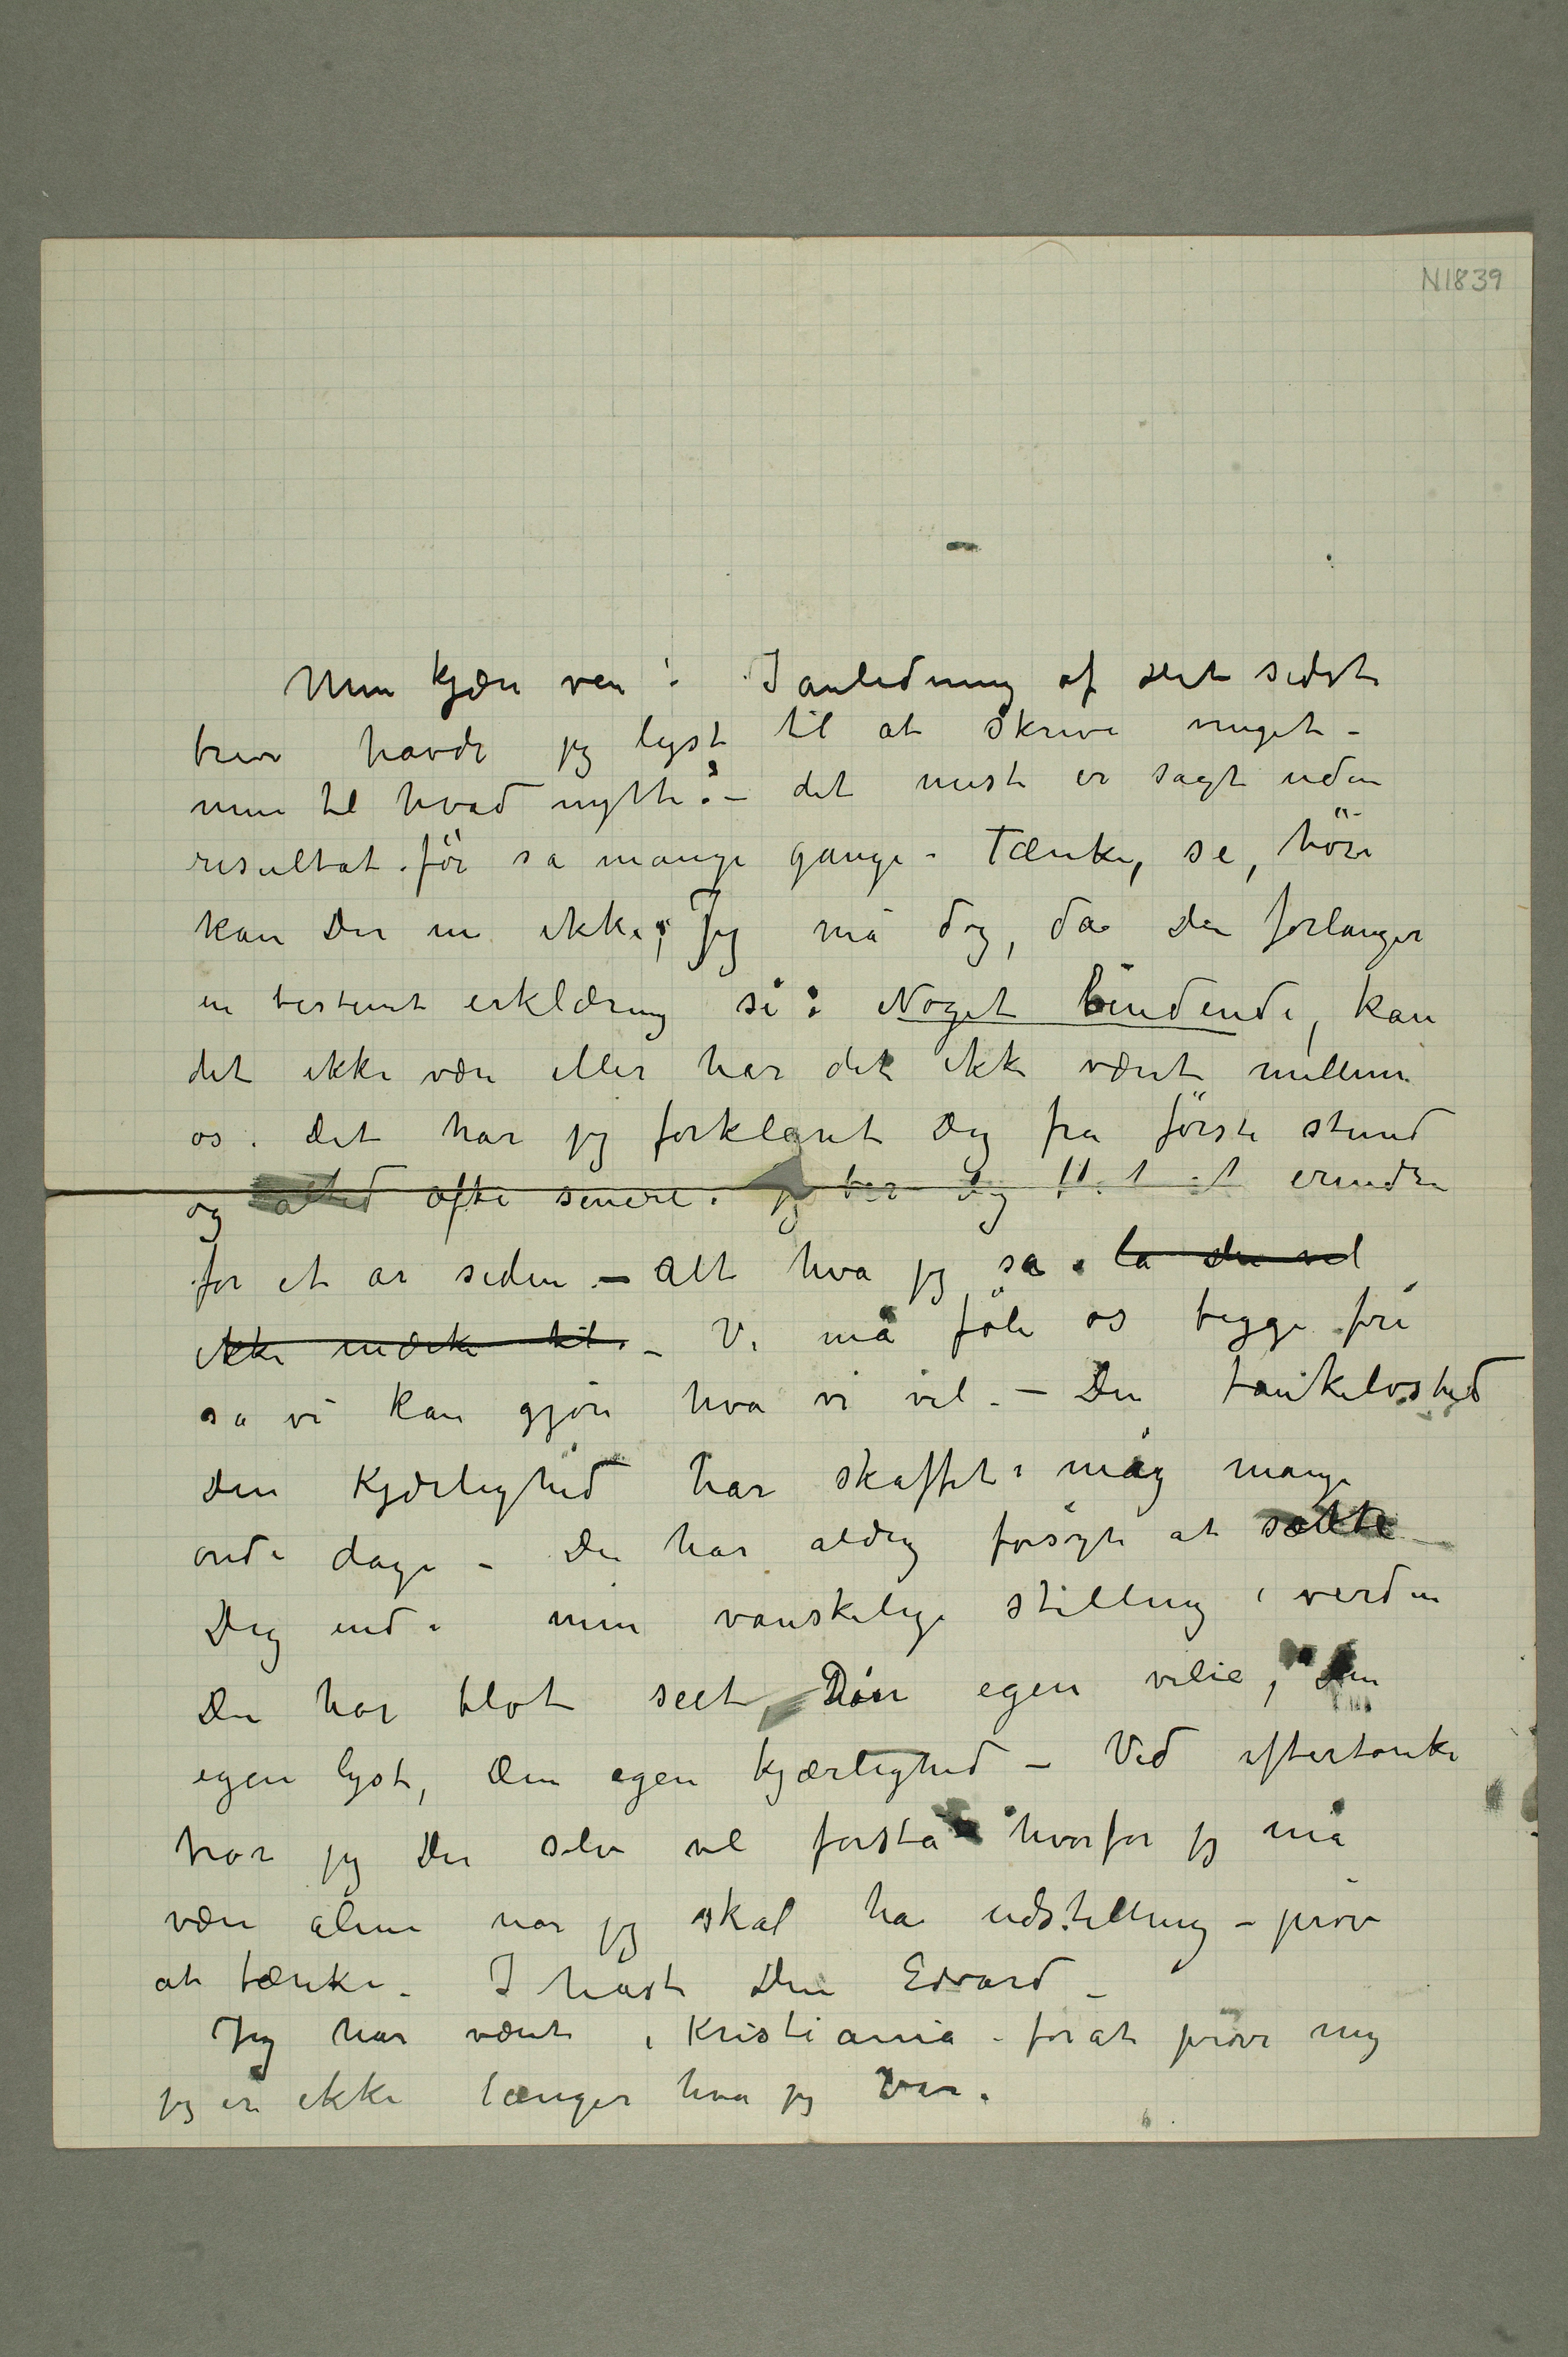 N1839
Min kjære ven! I anledning af dit sidste
brev havde jeg lyst til at skrive meget –
men til hvad nytte? – det meste er sagt uden
resultat før så mange gange – Tænke, se, høre
kan Du nu ikke; Jeg må dog, da Du forlanger
en bestemt erklæring si: Noget bindende, kan
det ikke være eller har det ikke været mellem
os. Det har jeg forklaret Dig fra første stund
og altid ofte senere. jeg ber Dig erindre
for et år siden – Alt hva jeg sa. la du vel
ikke mærke til. – Vi må føle os begge fri
så vi kan gjøre hva vi vil. – Din tankeløshed
Din Kjærlighed har skaffet mig mange
onde dage – Du har aldrig forsøgt at sætte
Dig ind i min vanskelige stilling i verden
Du har blot seet Din egen vilie, Din
egen lyst, Din egen kjærlighed – Ved eftertanke
tror jeg Du selv vil forstå hvorfor jeg må
være alene når jeg skal ha udstilling – prøv
at tænke. I hast Din Edvard –
Jeg har været i Kristiania – for at prøve mig
jeg er ikke længer hva jeg var.